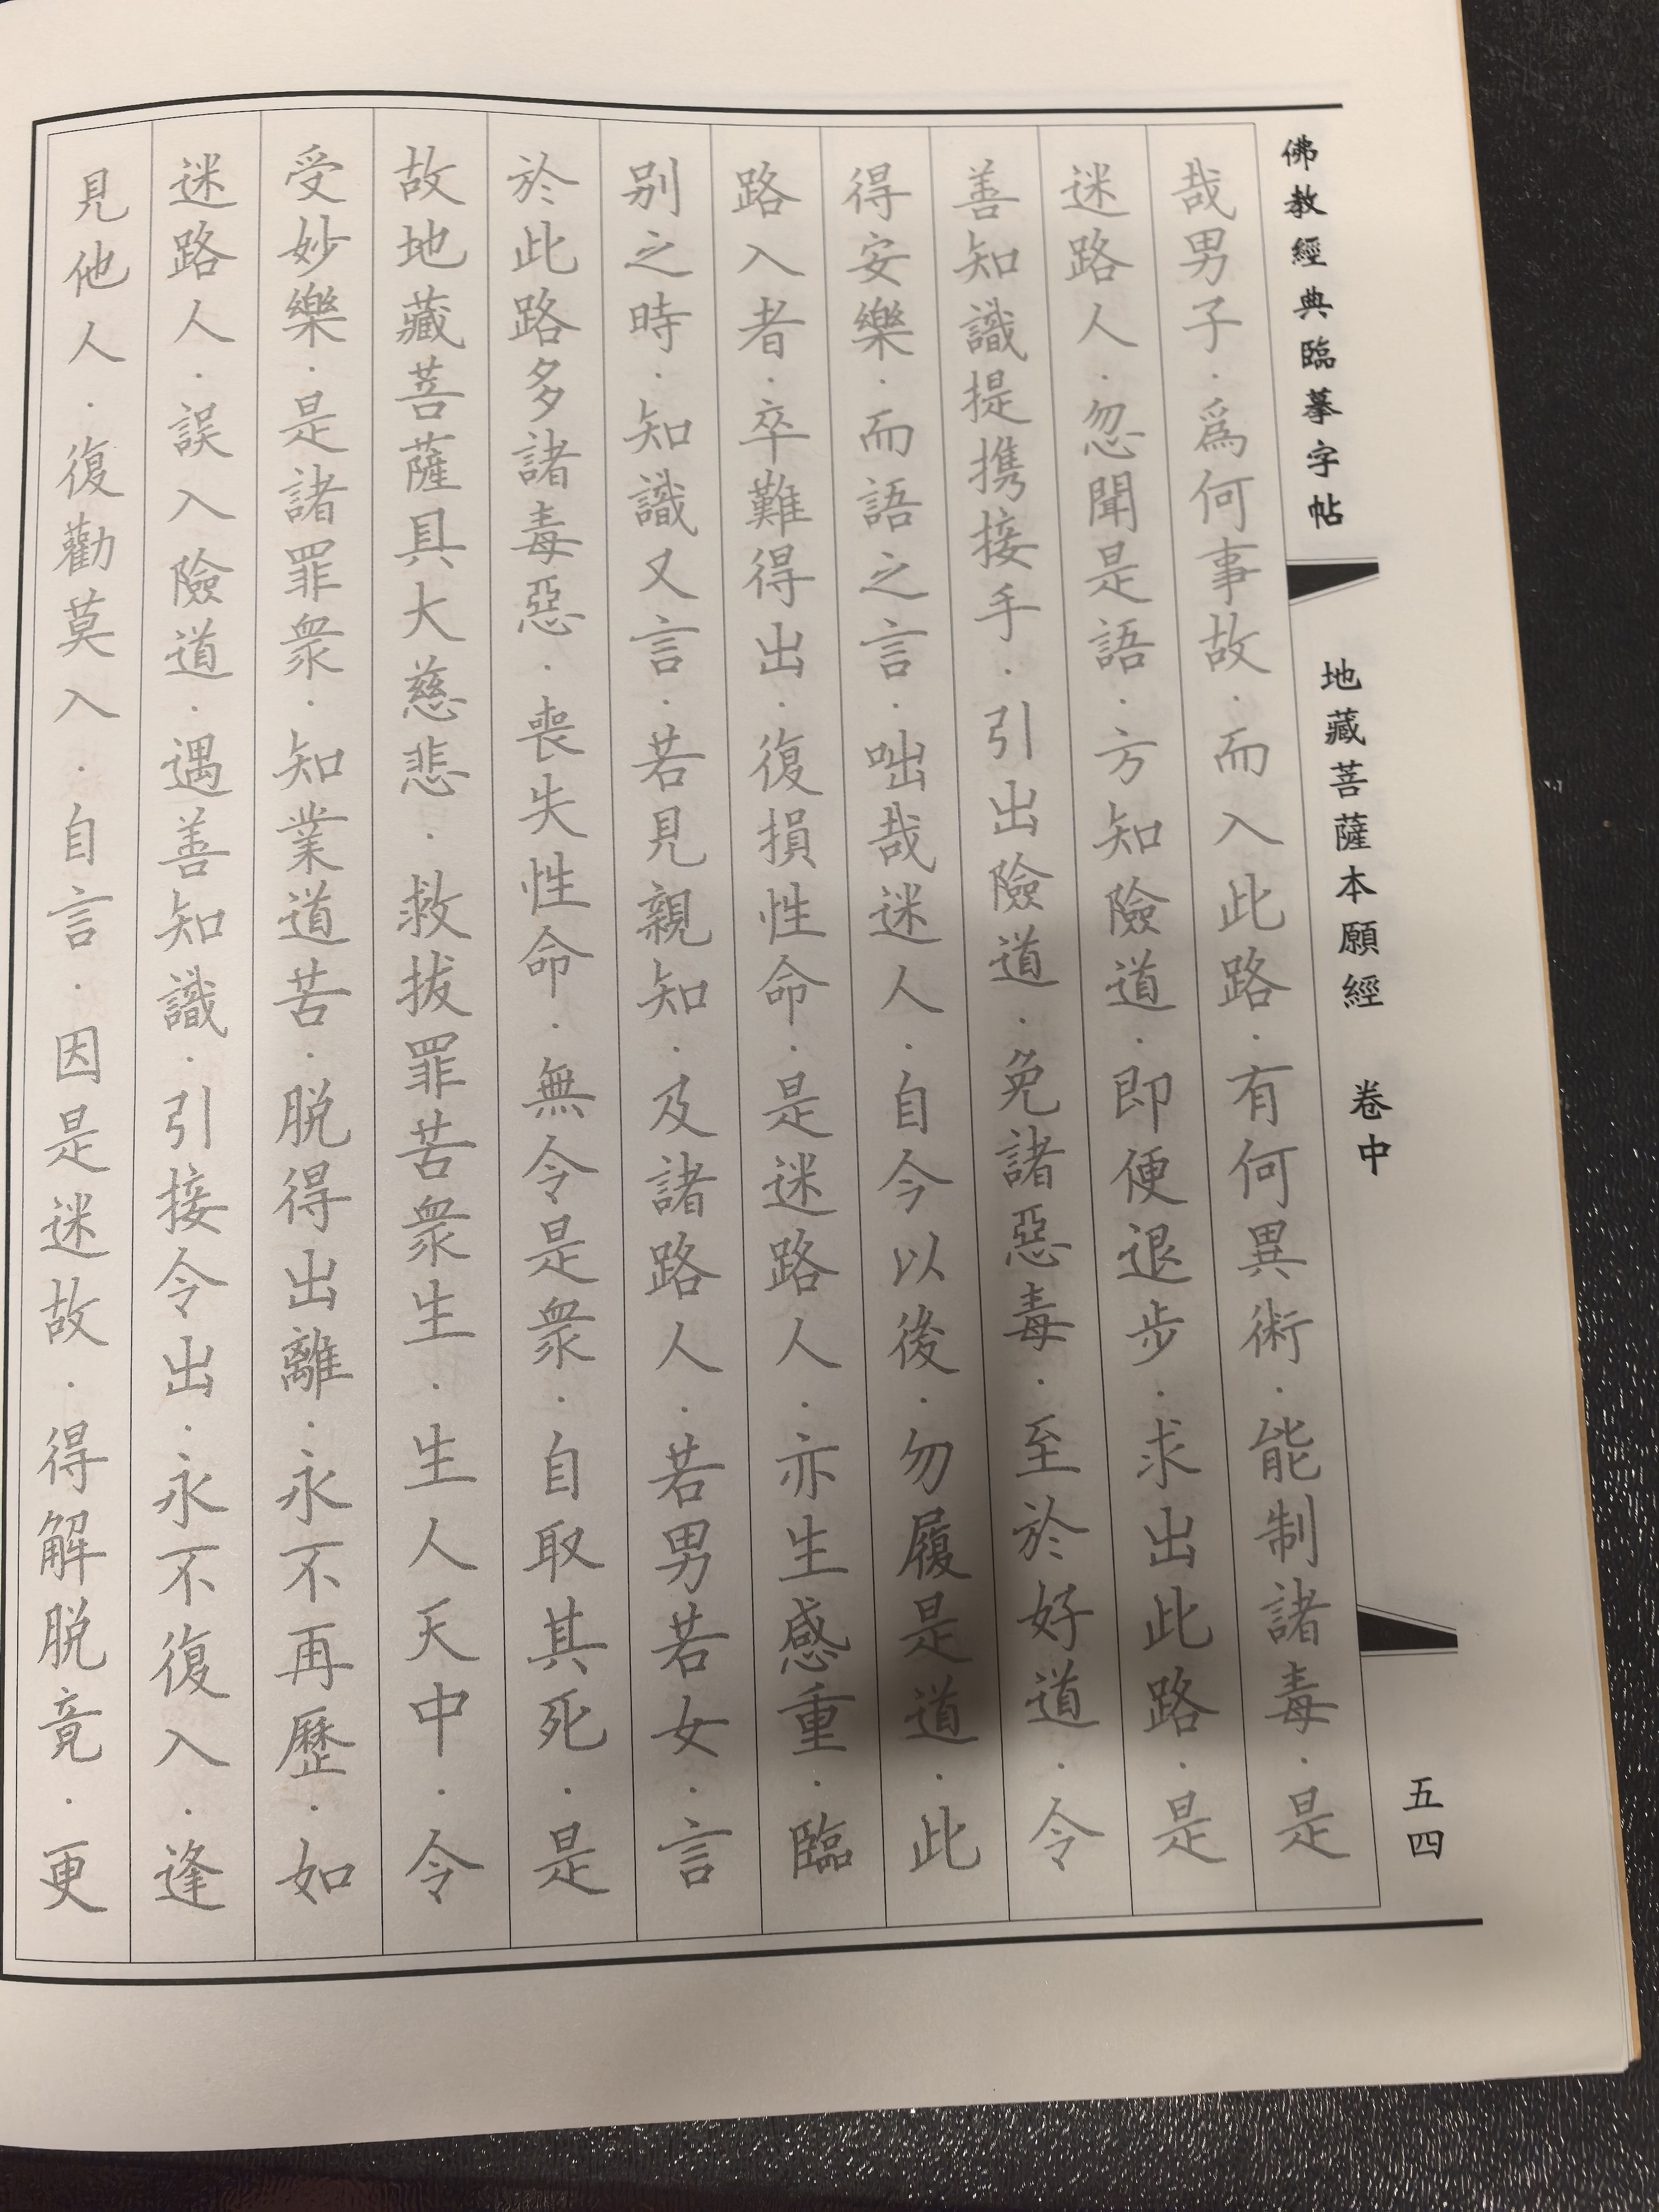 佛教經典臨摹字帖
地藏菩薩本願經 卷中
五四
哉男子·爲何事故·而入此路·有何異術·能制諸毒·是
迷路人·忽聞是語·方知險道·即便退步·求出此路·是
善知識提携接手·引出險道·免諸惡毒·至於好道·令
得安樂·而語之言·咄哉迷人·自今以後·勿履是道·此
路入者·卒難得出·復損性命·是迷路人·亦生感重·臨
别之時·知識又言·若見親知·及諸路人·若男若女·言
於此路多諸毒惡·喪失性命·無令是衆·自取其死·是
故地藏菩薩具大慈悲·救拔罪苦衆生·生人天中·令
受妙樂·是諸罪衆·知業道苦·脱得出離·永不再歷·如
迷路人·誤入險道·遇善知識·引接令出·永不復入·逢
見他人·復勸莫入·自言·因是迷故·得解脱竟·更